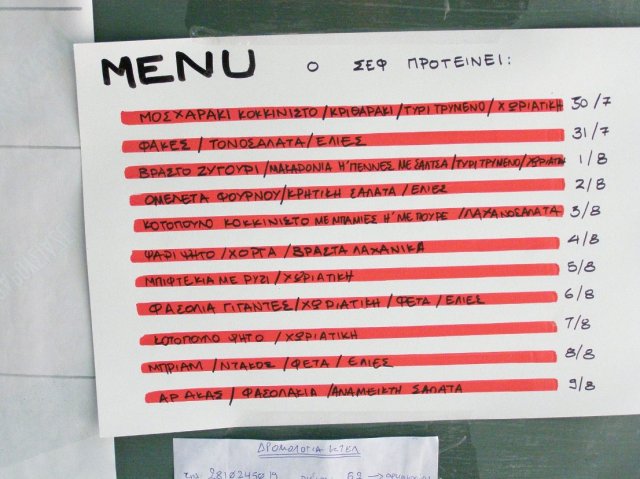 MENU Ο ΣΕΦ ΠΡΟΤΕΙΝΕΙ:
ΜΟΣΧΑΡΑΚΙ ΚΟΚΚΙΝΙΣΤΟ/ΚΡΙΘΑΡΑΚΙ/ΤΥΡΙ ΤΡΙΜΕΝΟ/ΧΩΡΙΑΤΙΚΗ 30/7
ΦΑΚΕΣ/ΤΟΝΟΣΑΛΑΤΑ/ΕΛΙΕΣ 31/7
ΒΡΑΣΤΟ ΖΥΓΟΥΡΙ/ΜΑΚΑΔΟΝΙΑ Η' ΠΕΝΝΕΣ ΜΕ ΣΑΛΤΣΑ/ΤΥΡΙ ΤΡΙΜΕΝΟ/ΧΩΡΙΑΤΙΚΗ 1/8
ΟΜΕΛΕΤΑ ΦΟΥΡΝΟΥ/ΚΡΗΤΙΚΗ ΣΑΛΑΤΑ/ΕΛΙΕΣ 2/8
ΚΟΤΟΠΟΥΛΟ ΚΟΚΚΙΝΙΣΤΟ ΜΕ ΜΠΑΜΙΕΣ Η' ΜΕ ΠΟΥΡΕ/ΛΑΧΑΝΟΣΑΛΑΤΑ 3/8
ΨΑΡΙ ΨΗΤΟ/ΧΟΡΤΑ/ΒΡΑΣΤΑ ΛΑΧΑΝΙΚΑ 4/8
ΜΠΙΦΤΕΚΙΑ ΜΕ ΡΥΖΙ/ΧΩΡΙΑΤΙΚΗ 5/8
ΦΑΣΟΛΙΑ ΓΙΓΑΝΤΕΣ/ΧΩΡΙΑΤΙΚΗ/ΦΕΤΑ/ΕΛΙΕΣ 6/8
ΚΟΤΟΠΟΥΛΟ ΨΗΤΟ/ΧΩΡΙΑΤΙΚΗ 7/8
ΜΠΡΙΑΜ/ΝΤΑΚΟΣ/ΦΕΤΑ/ΕΛΙΕΣ 8/8
ΑΡΑΚΑΣ/ΦΑΣΟΛΑΚΙΑ/ΑΝΑΜΕΙΚΤΗ ΣΑΛΑΤΑ 9/8
ΔΡΟΜΟΛΟΓΙΑ ΚΤΕΛ